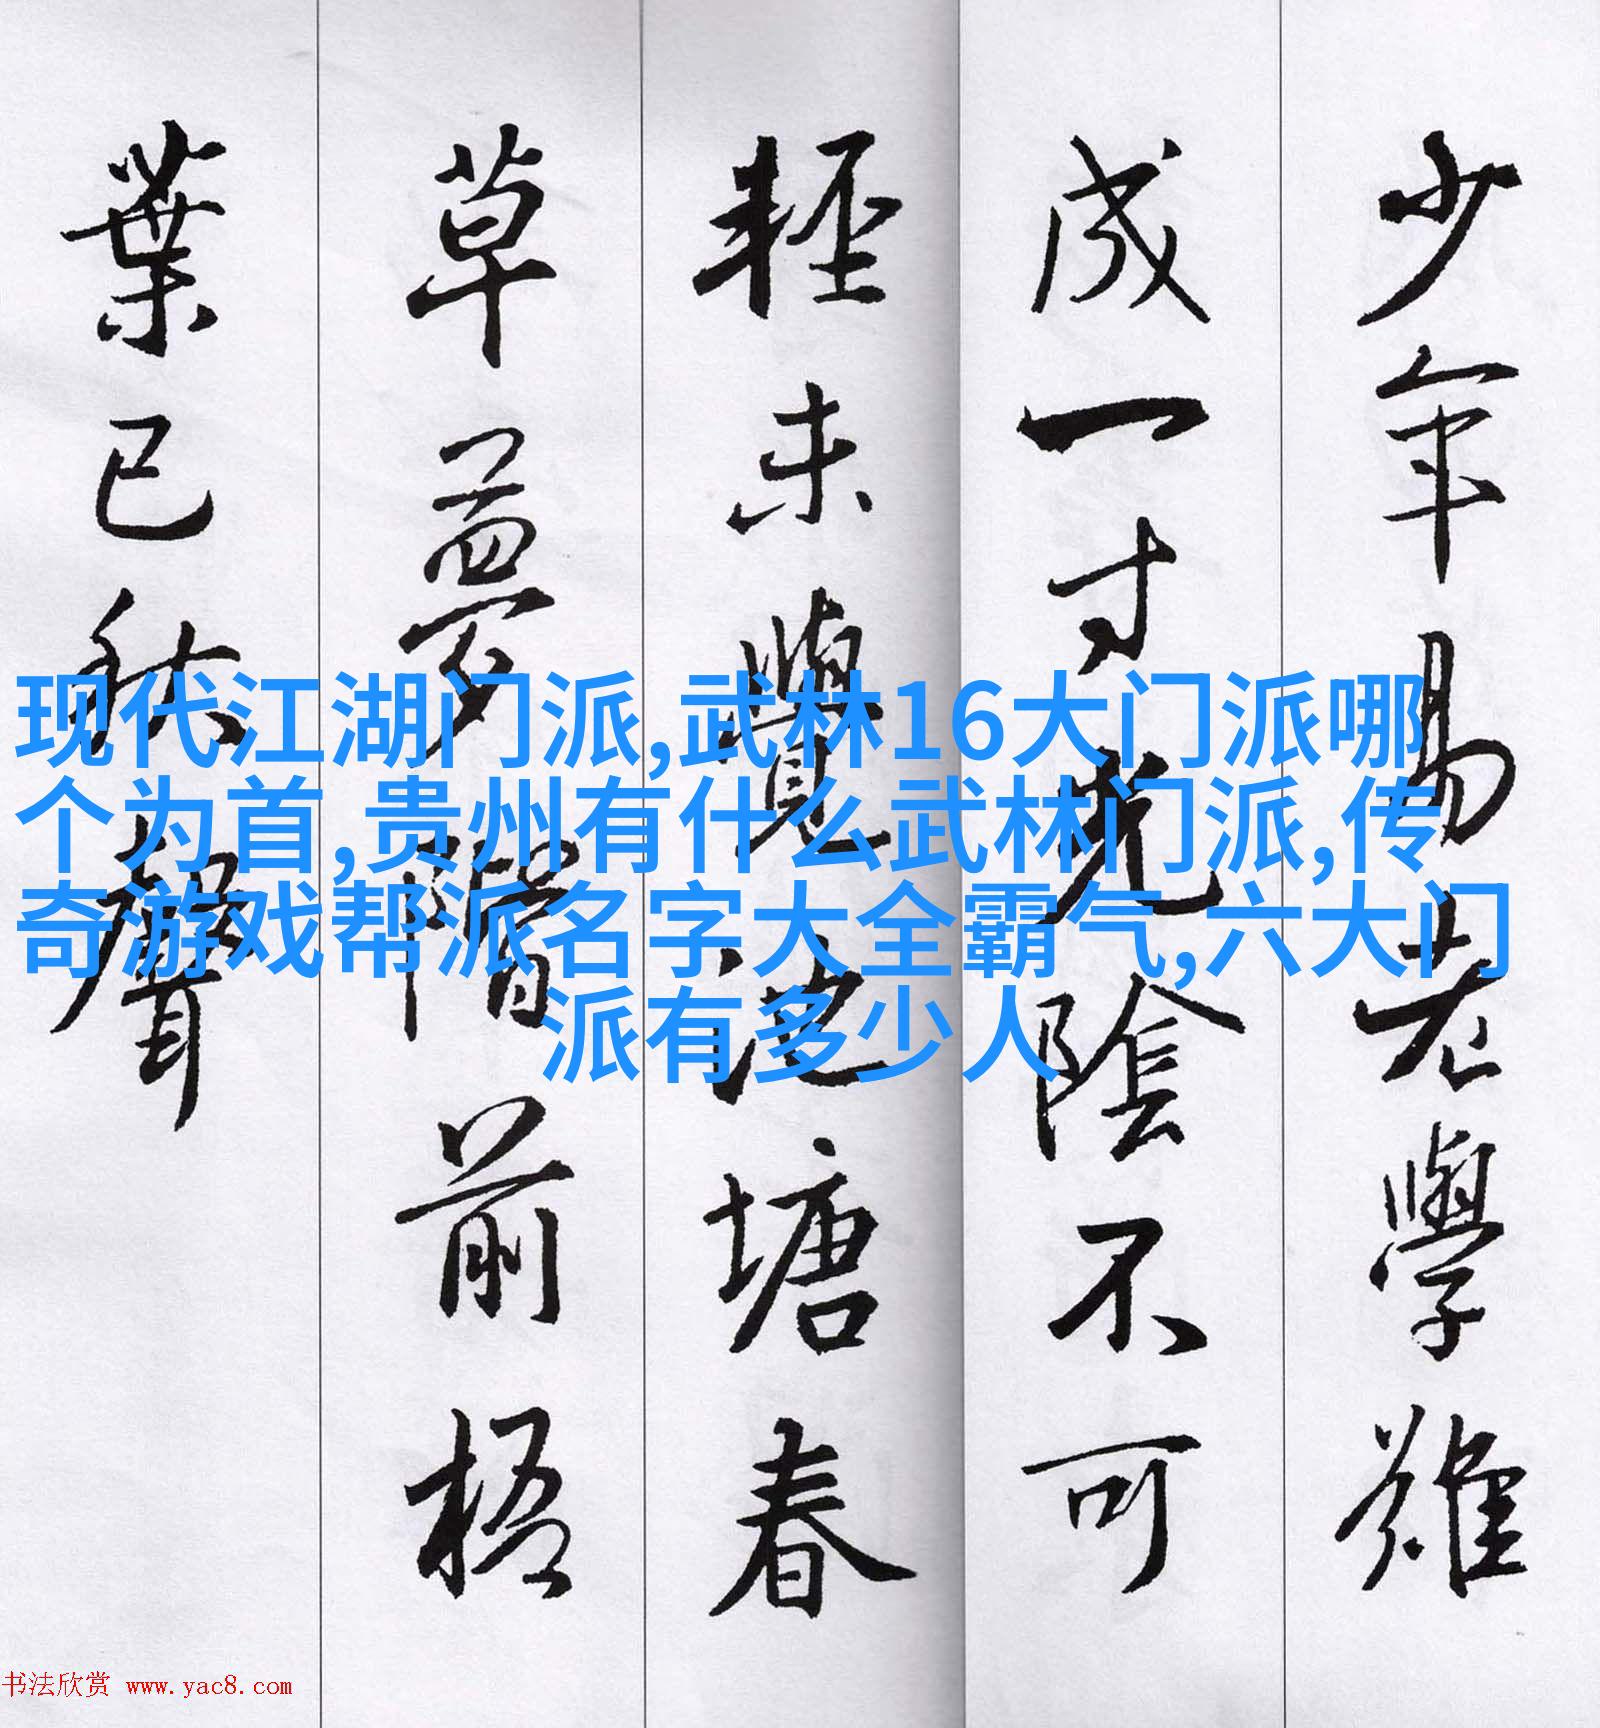 少年易老學難
成一寸光陰不可
輕未覺池塘春
草夢階前梧
葉已秋聲
现代江湖门派,武林16大门派哪
个为首,贵州有什么武林门派,传
奇游戏帮派名字大全霸气,六大门
派有多少人
书法欣赏 www.yac8.com